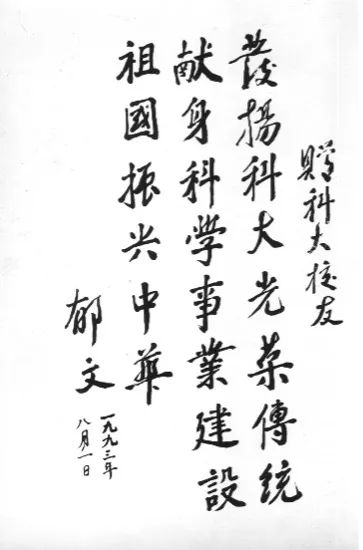 贈科大校友
發揚科大光荣傳統
献身科學事業建設
祖國振兴中華
郁文
一九九三年
八月一日